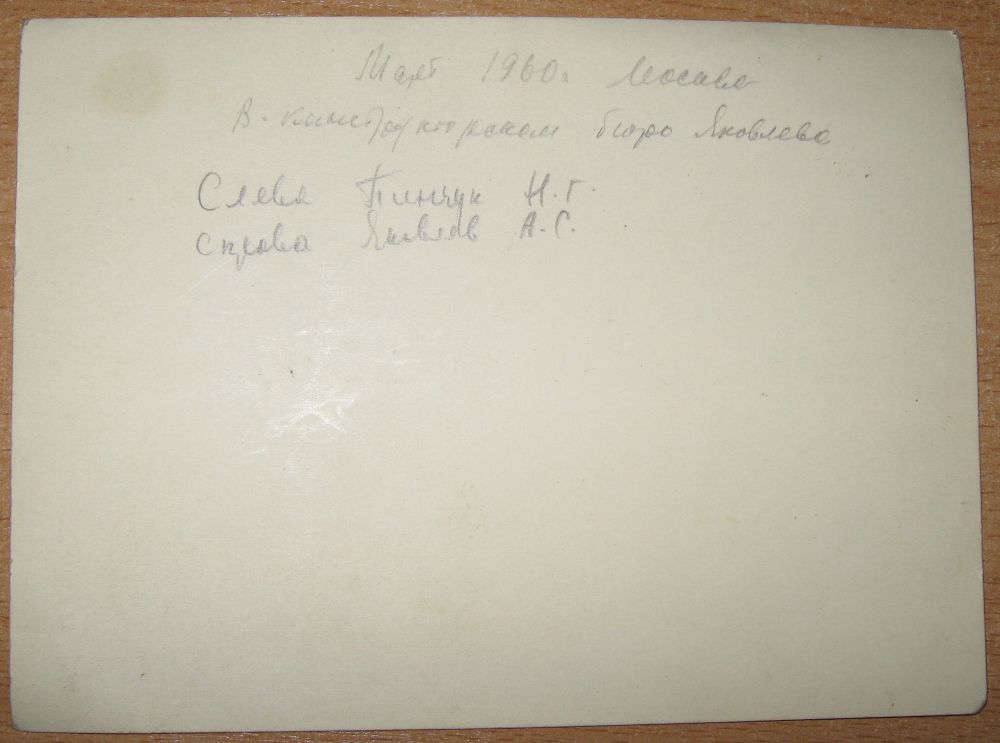 Март 1960г Москва
В. конструкторском бюро Яковлева
Слева Пинчук Н.Г.
Справа Яковлев А.С.